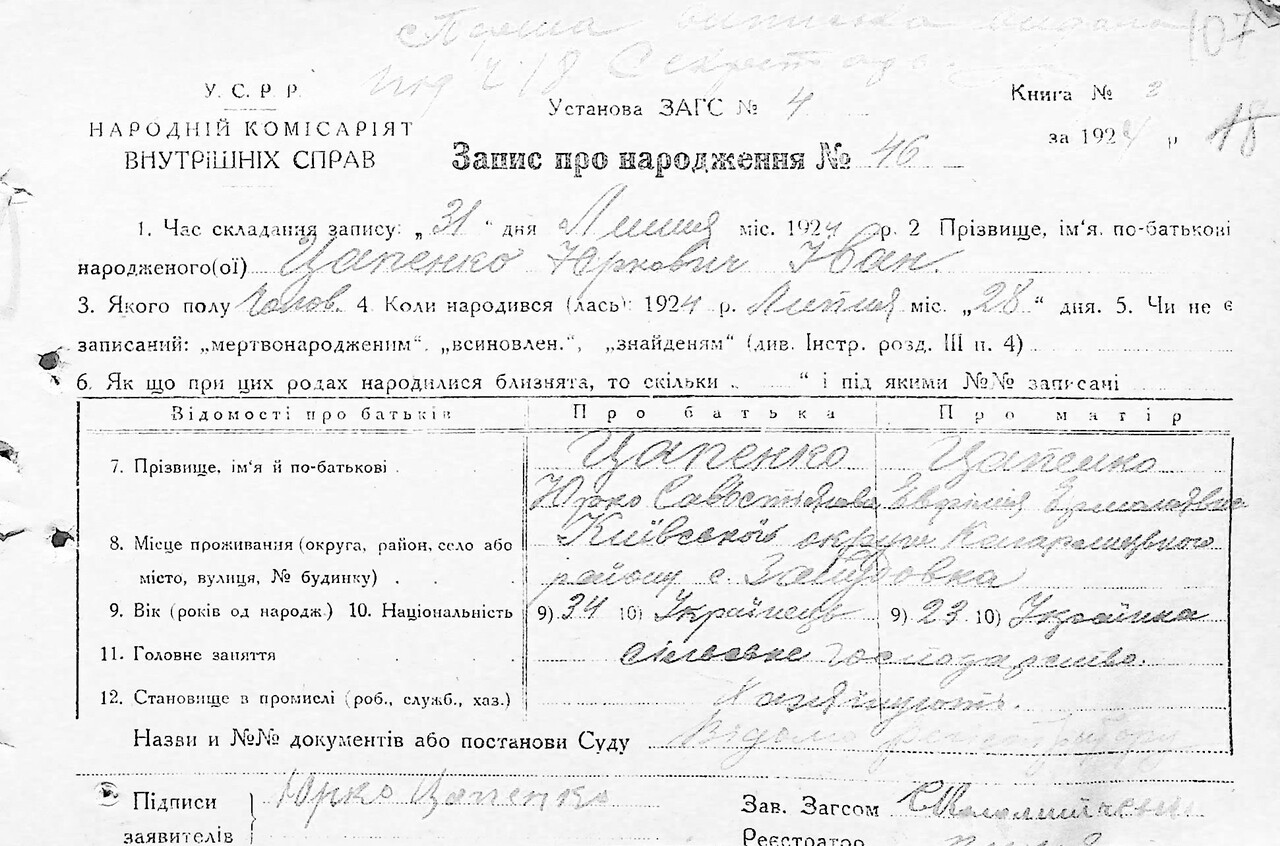 107
У. С. Р. Р.
НАРОДНІЙ КОМІСАРІЯТ
ВНУТРІШНІХ СПРАВ
Установа ЗАГС № 4
Книга № 3
за 1924 р
18
Запис про народження № 46
1. Час складання запису: „31“ дня Липня міс. 1924 р. 2 Прізвище, ім'я, по-батькові
народженого(ої) Цапенко Юркович Іван.
3. Якого полу Чолов. 4. Коли народився (лась): 1924 р. Липня міс. „28“ дня. 5. Чи не є
записаний: „мертвонародженим“, „всиновлен.“, „знайденям“ (див. Інстр. розд. III п. 4)
6. Як що при цих родах народилися близнята, то скільки „ “ і під якими №№ записані
Відомості про батьків Про батька Про матір
7. Прізвище, ім'я й по-батькові Цапенко Цапенко
Юрко
8. Місце проживання (округа, район, село або Київської округи Кагарлицького
місто, вулиця, № будинку) району с.
9. Вік (років од народж.) 10. Національність 9) 34 10) Українець 9) 23 10) Українка
11. Головне заняття сільське господарство.
12. Становище в промислі (роб., служб., хаз.)
Назви и №№ документів або постанови Суду
Підписи Юрко Цапенко
заявителів
Зав. Загсом
Реєстратор